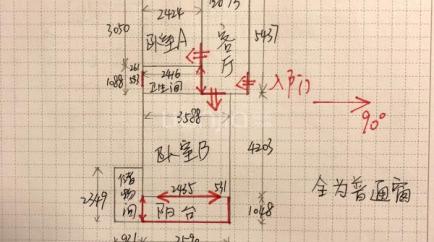 2424
3050
卧室A
客厅
5437
261
2416
1088
537
卫生间
入户门
90°
3588
卧室B
4203
储物间
2349
2435
531
阳台
1048
全为普通窗
921
2590